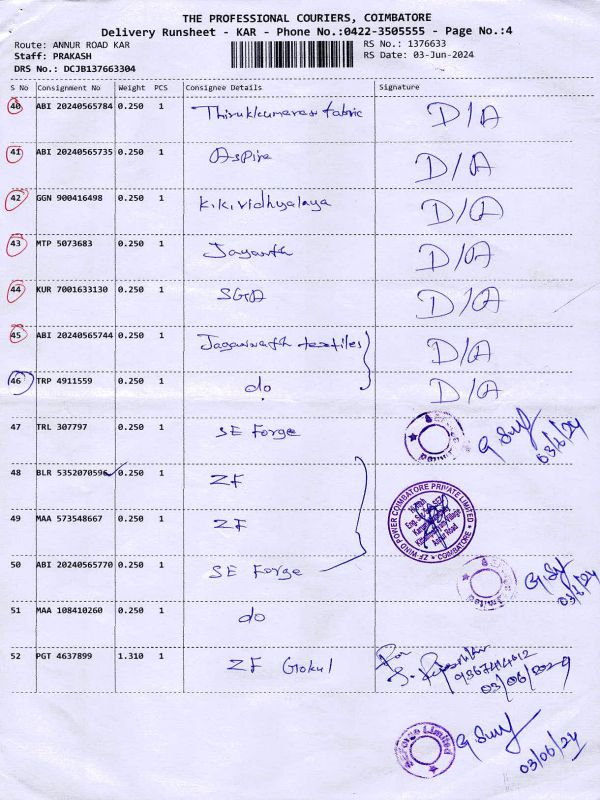 THE PROFESSIONAL COURIERS, COIMBATORE
Delivery Runsheet - KAR - Phone No.:0422-3505555 - Page No.:4
Route: ANNUR ROAD KAR RS No.: 1376633
Staff: PRAKASH RS Date: 03-Jun-2024
DRS No.: DCJB137663304
S No Consignment No Weight PCS Consignee Details Signature
40 ABI 20240565784 0.250 1 Thirukkumaran fabric D/A
41 ABI 20240565735 0.250 1 Aspire D/A
42 GGN 900416498 0.250 1 K.K. Vidhyalaya D/A
43 MTP 5073683 0.250 1 Jayanth D/A
44 KUR 7001633130 0.250 1 SGA D/A
45 ABI 20240565744 0.250 1 Jagannath textiles D/A
46 TRP 4911559 0.250 1 do D/A
47 TRL 307797 0.250 1 SE Forge 03/6/24
48 BLR 5352070596 0.250 1 ZF
ZF WIND POWER COIMBATORE PRIVATE LIMITED
COIMBATORE
49 MAA 573548667 0.250 1 ZF
50 ABI 20240565770 0.250 1 SE Forge 03/6/24
51 MAA 108410260 0.250 1 do
52 PGT 4637899 1.310 1 ZF Gokul
03/06/2024
SEForge Limited
03/06/24